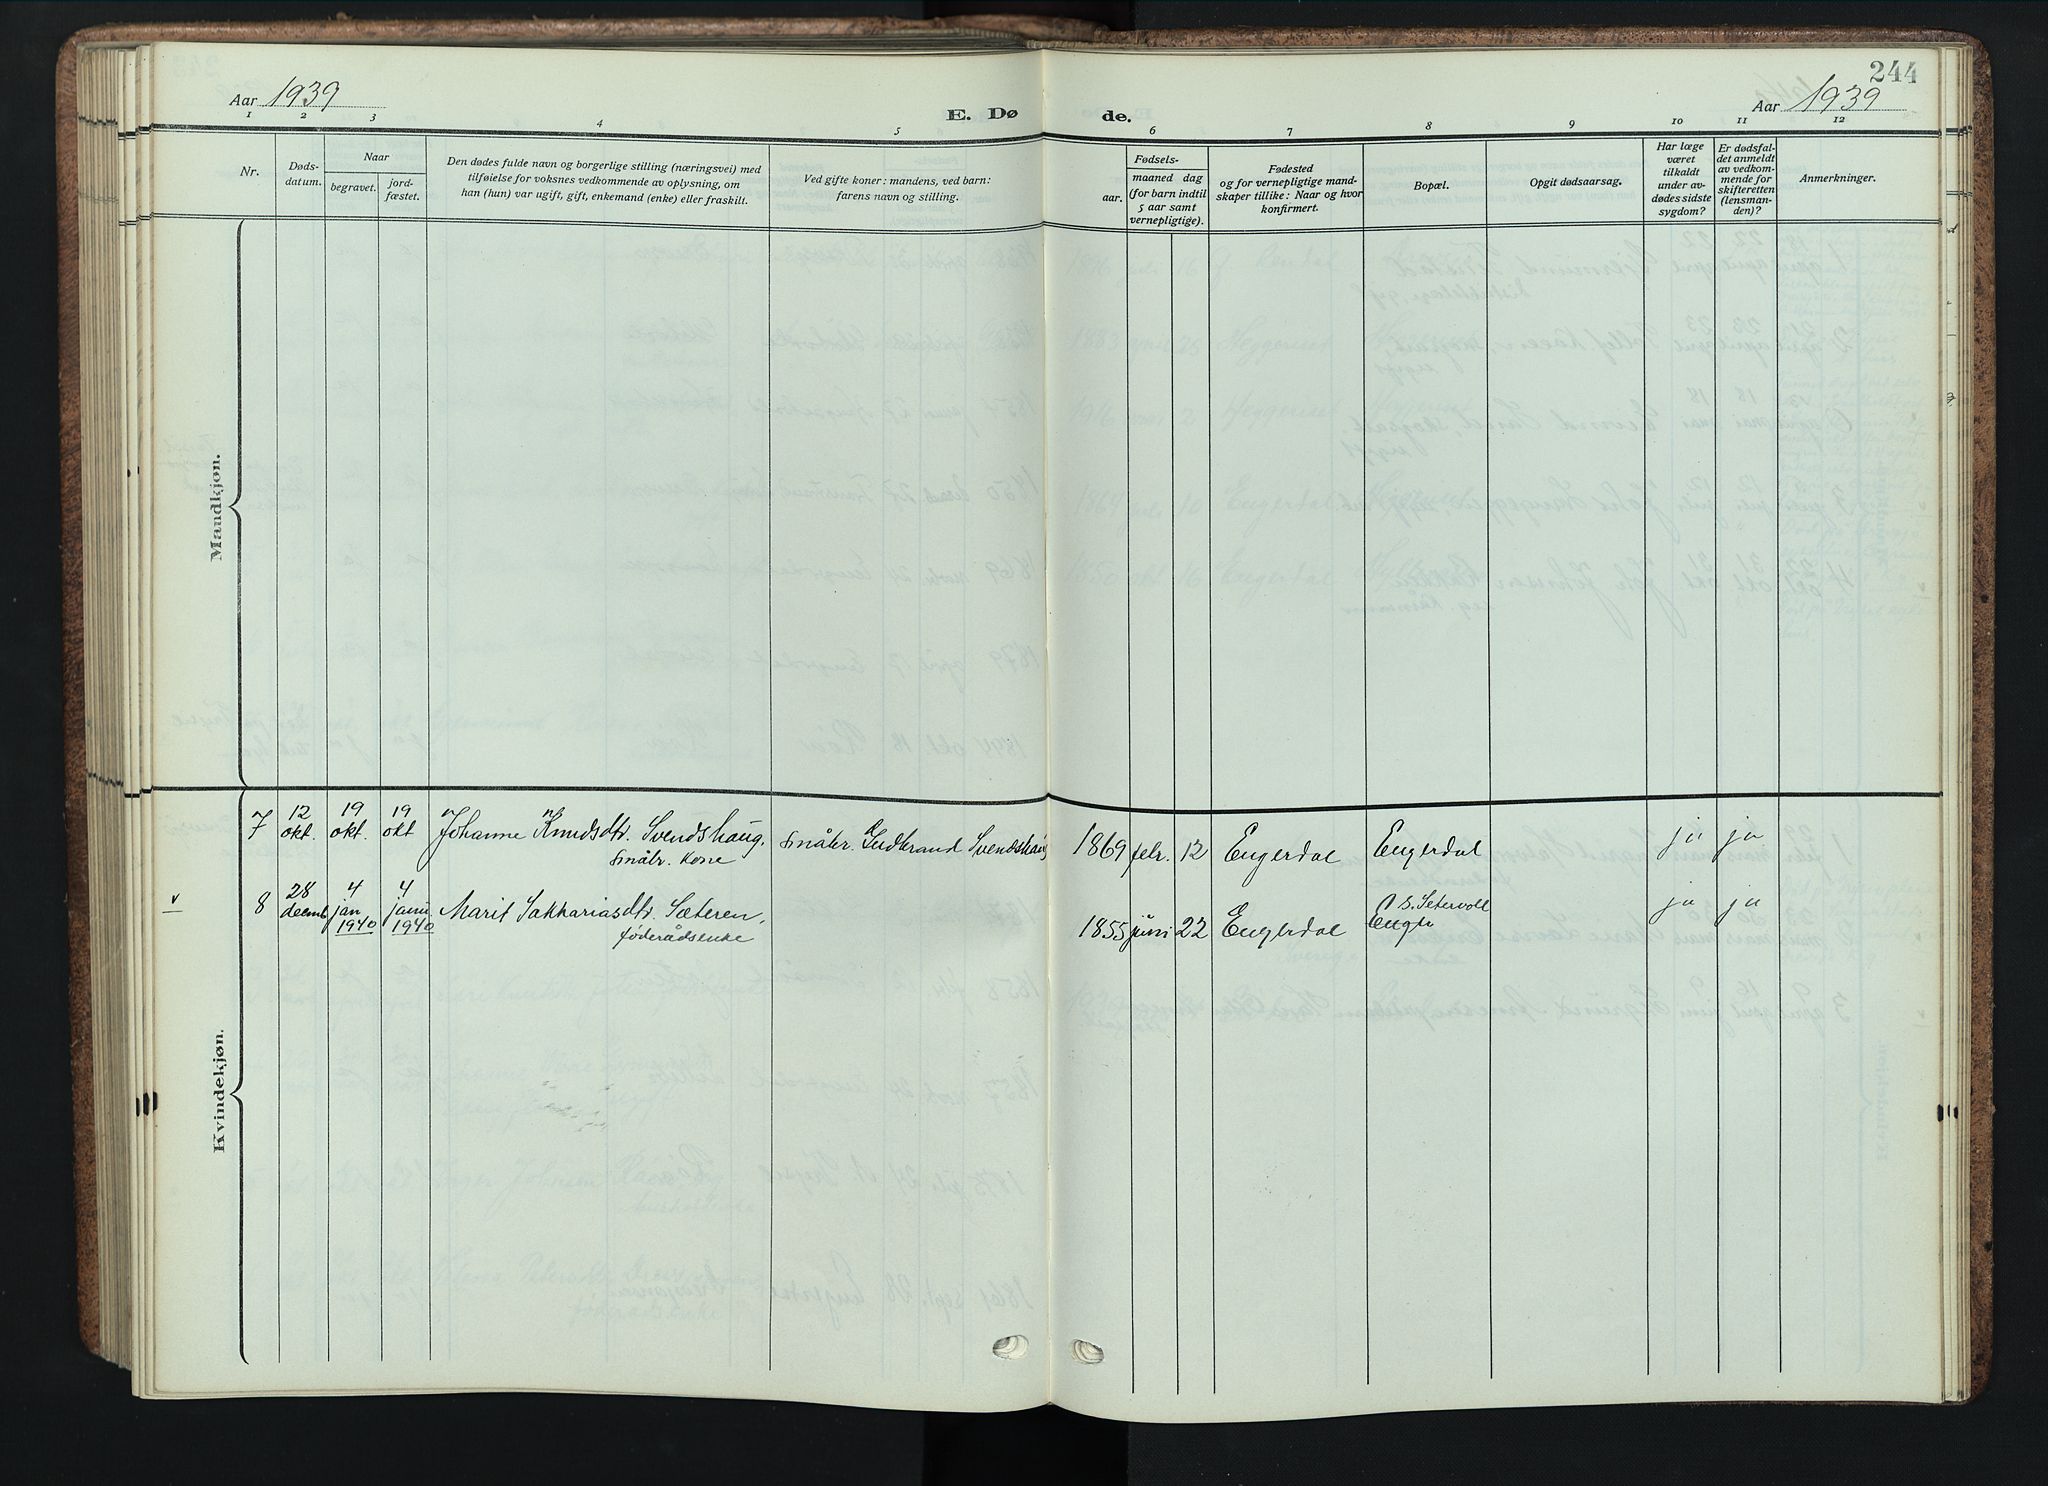 244
Aar 1939
E. Dø
de.
Aar 1939
1 2 3 4 5 6 7 8 9 10 11 12
Nr.
Døds-
datum.
Naar
begravet.
jord-
fæstet.
Den dødes fulde navn og borgerlige stilling (næringsvei) med
tilføielse for voksnes vedkommende av oplysning, om
han (hun) var ugift, gift, enkemand (enke) eller fraskilt.
Ved gifte koner: mandens, ved barn:
farens navn og stilling.
Fødsels-
aar.
maaned dag
(for barn indtil
5 aar samt
vernepligtige).
Fødested
og for vernepligtige mand-
skaper tillike: Naar og hvor
konfirmert.
Bopæl.
Opgit dødsaarsag.
Har læge
været
tilkaldt
under av-
dødes sidste
sygdom?
Er dødsfal-
det anmeldt
av vedkom-
mende for
skifteretten
(lensman-
den)?
Anmerkninger.
Mandkjøn.
Kvindekjøn.
7 12 okt. 19 okt. 19 okt Johanne Knudsdtr. Svendshaug, småbr. Gudbrand Svendshaug 1869 febr. 12 Engerdal Engerdal ja ja
småbr. kone
v 8 28 decemb 4 jan 1940 4 janu. 1940 Marit Sakkariasdtr. Sæteren, 1855 juni 22 Engerdal Setervoll ja ja
føderådsenke